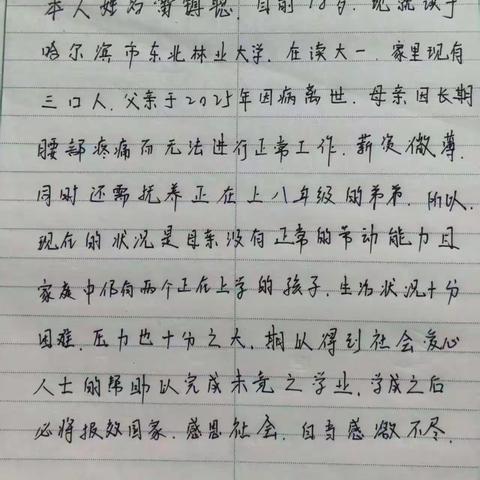 本人姓名雷镇聪,目前18岁,现就读于
哈尔滨市东北林业大学,在读大一.家里现有
三口人,父亲于2025年因病离世.母亲因长期
腰部疼痛而无法进行正常工作.薪资微薄.
同时还需抚养正在上八年级的弟弟.所以,
现在的状况是母亲没有正常的劳动能力且
家庭中仍有两个正在上学的孩子.生活状况十分
困难,压力也十分之大,期以得到社会爱心
人士的帮助以完成未竟之学业,学成之后
必将报效国家.感恩社会.自当感激不尽.